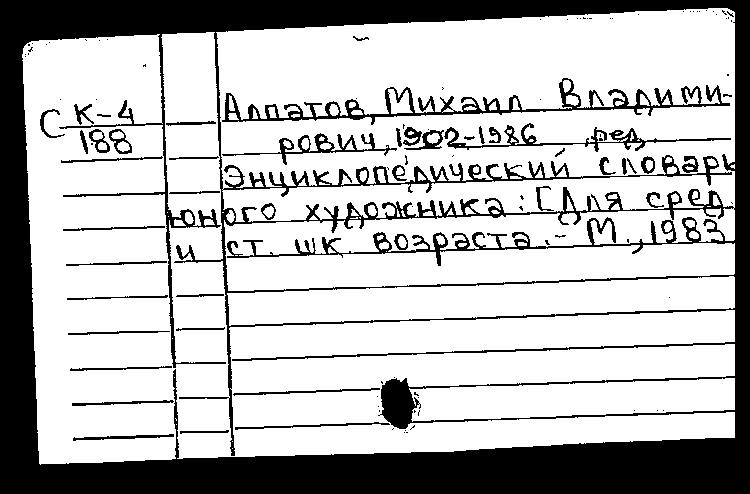 С К-4
188
Алпатов, Михаил Владими-
рович, 1902-1986 ред.
Энциклопедический словарь
юного художника: [Для сред.
и ст. шк. возраста.- М., 1983